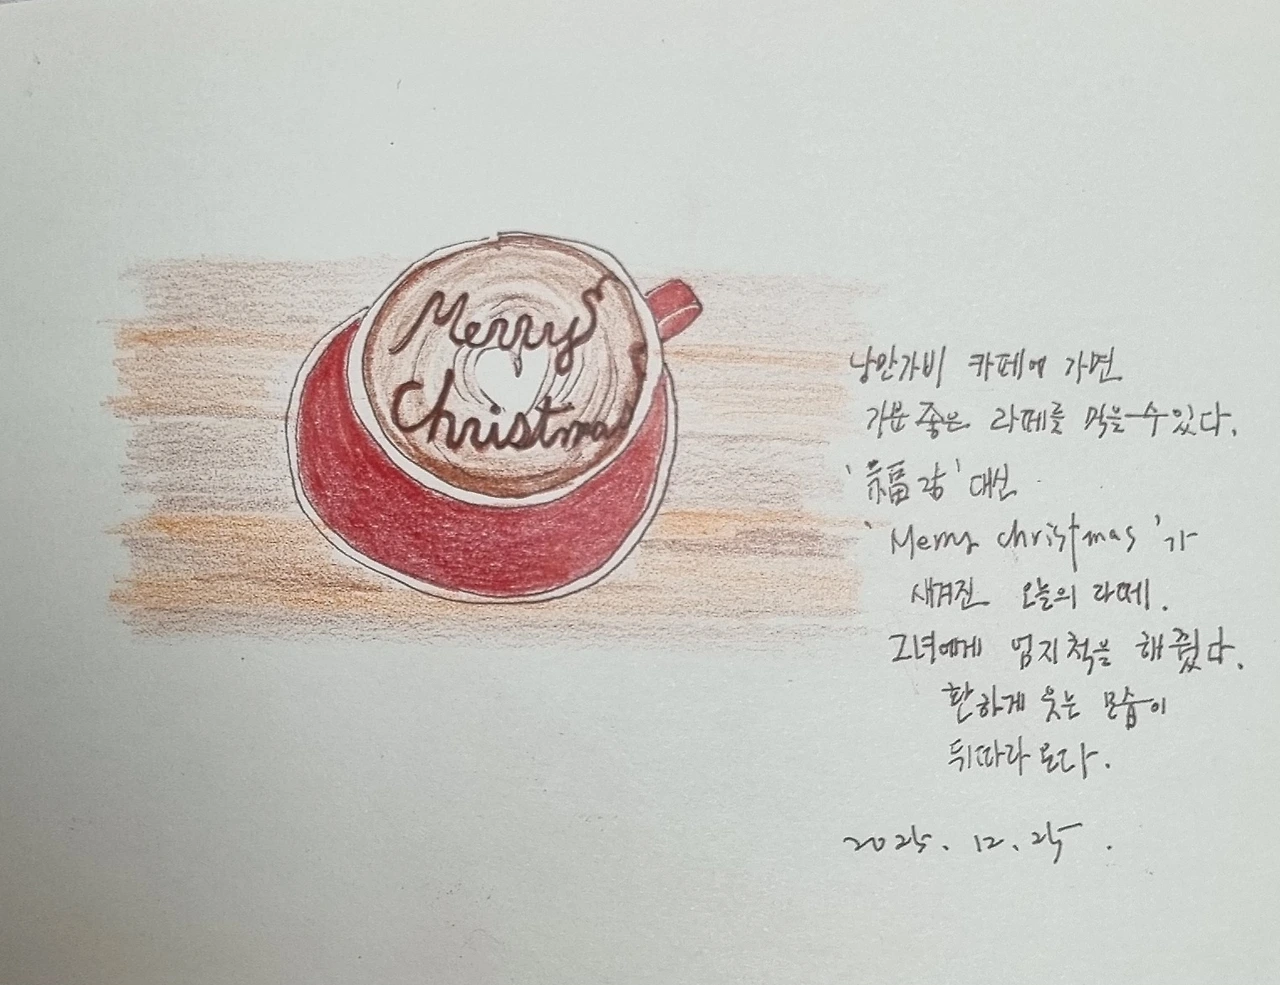 Merry
Christmas
낭만가비 카페에 가면
기분 좋은 라떼를 먹을 수 있다.
' 福 ' 대신
'Merry christmas'가
새겨진 오늘의 라떼.
그녀에게 엄지척을 해 줬다.
환하게 웃는 모습이
뒤따라 온다.
2025. 12. 25.